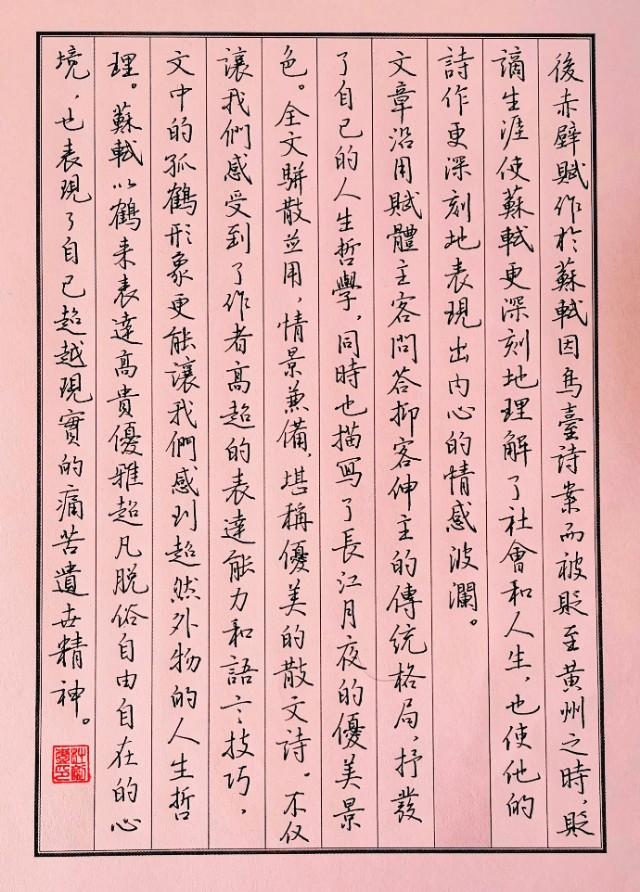 後赤壁賦作於蘇軾因烏臺詩案而被貶至黃州之時，貶
謫生涯使蘇軾更深刻地理解了社會和人生，也使他的
詩作更深刻地表現出內心的情感波瀾。
文章沿用賦體主客問答抑客伸主的傳統格局，抒發
了自己的人生哲學，同時也描寫了長江月夜的優美景
色。全文駢散並用，情景兼備，堪稱優美的散文詩。不仅
讓我們感受到了作者高超的表達能力和語言技巧，
文中的孤鶴形象更能讓我們感到超然外物的人生哲
理。蘇軾以鶴来表達高貴優雅超凡脫俗自由自在的心
境，也表現了自己超越現實的痛苦遺世精神。